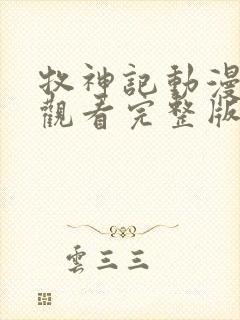 牧神記動漫
觀看完整版
雲三三